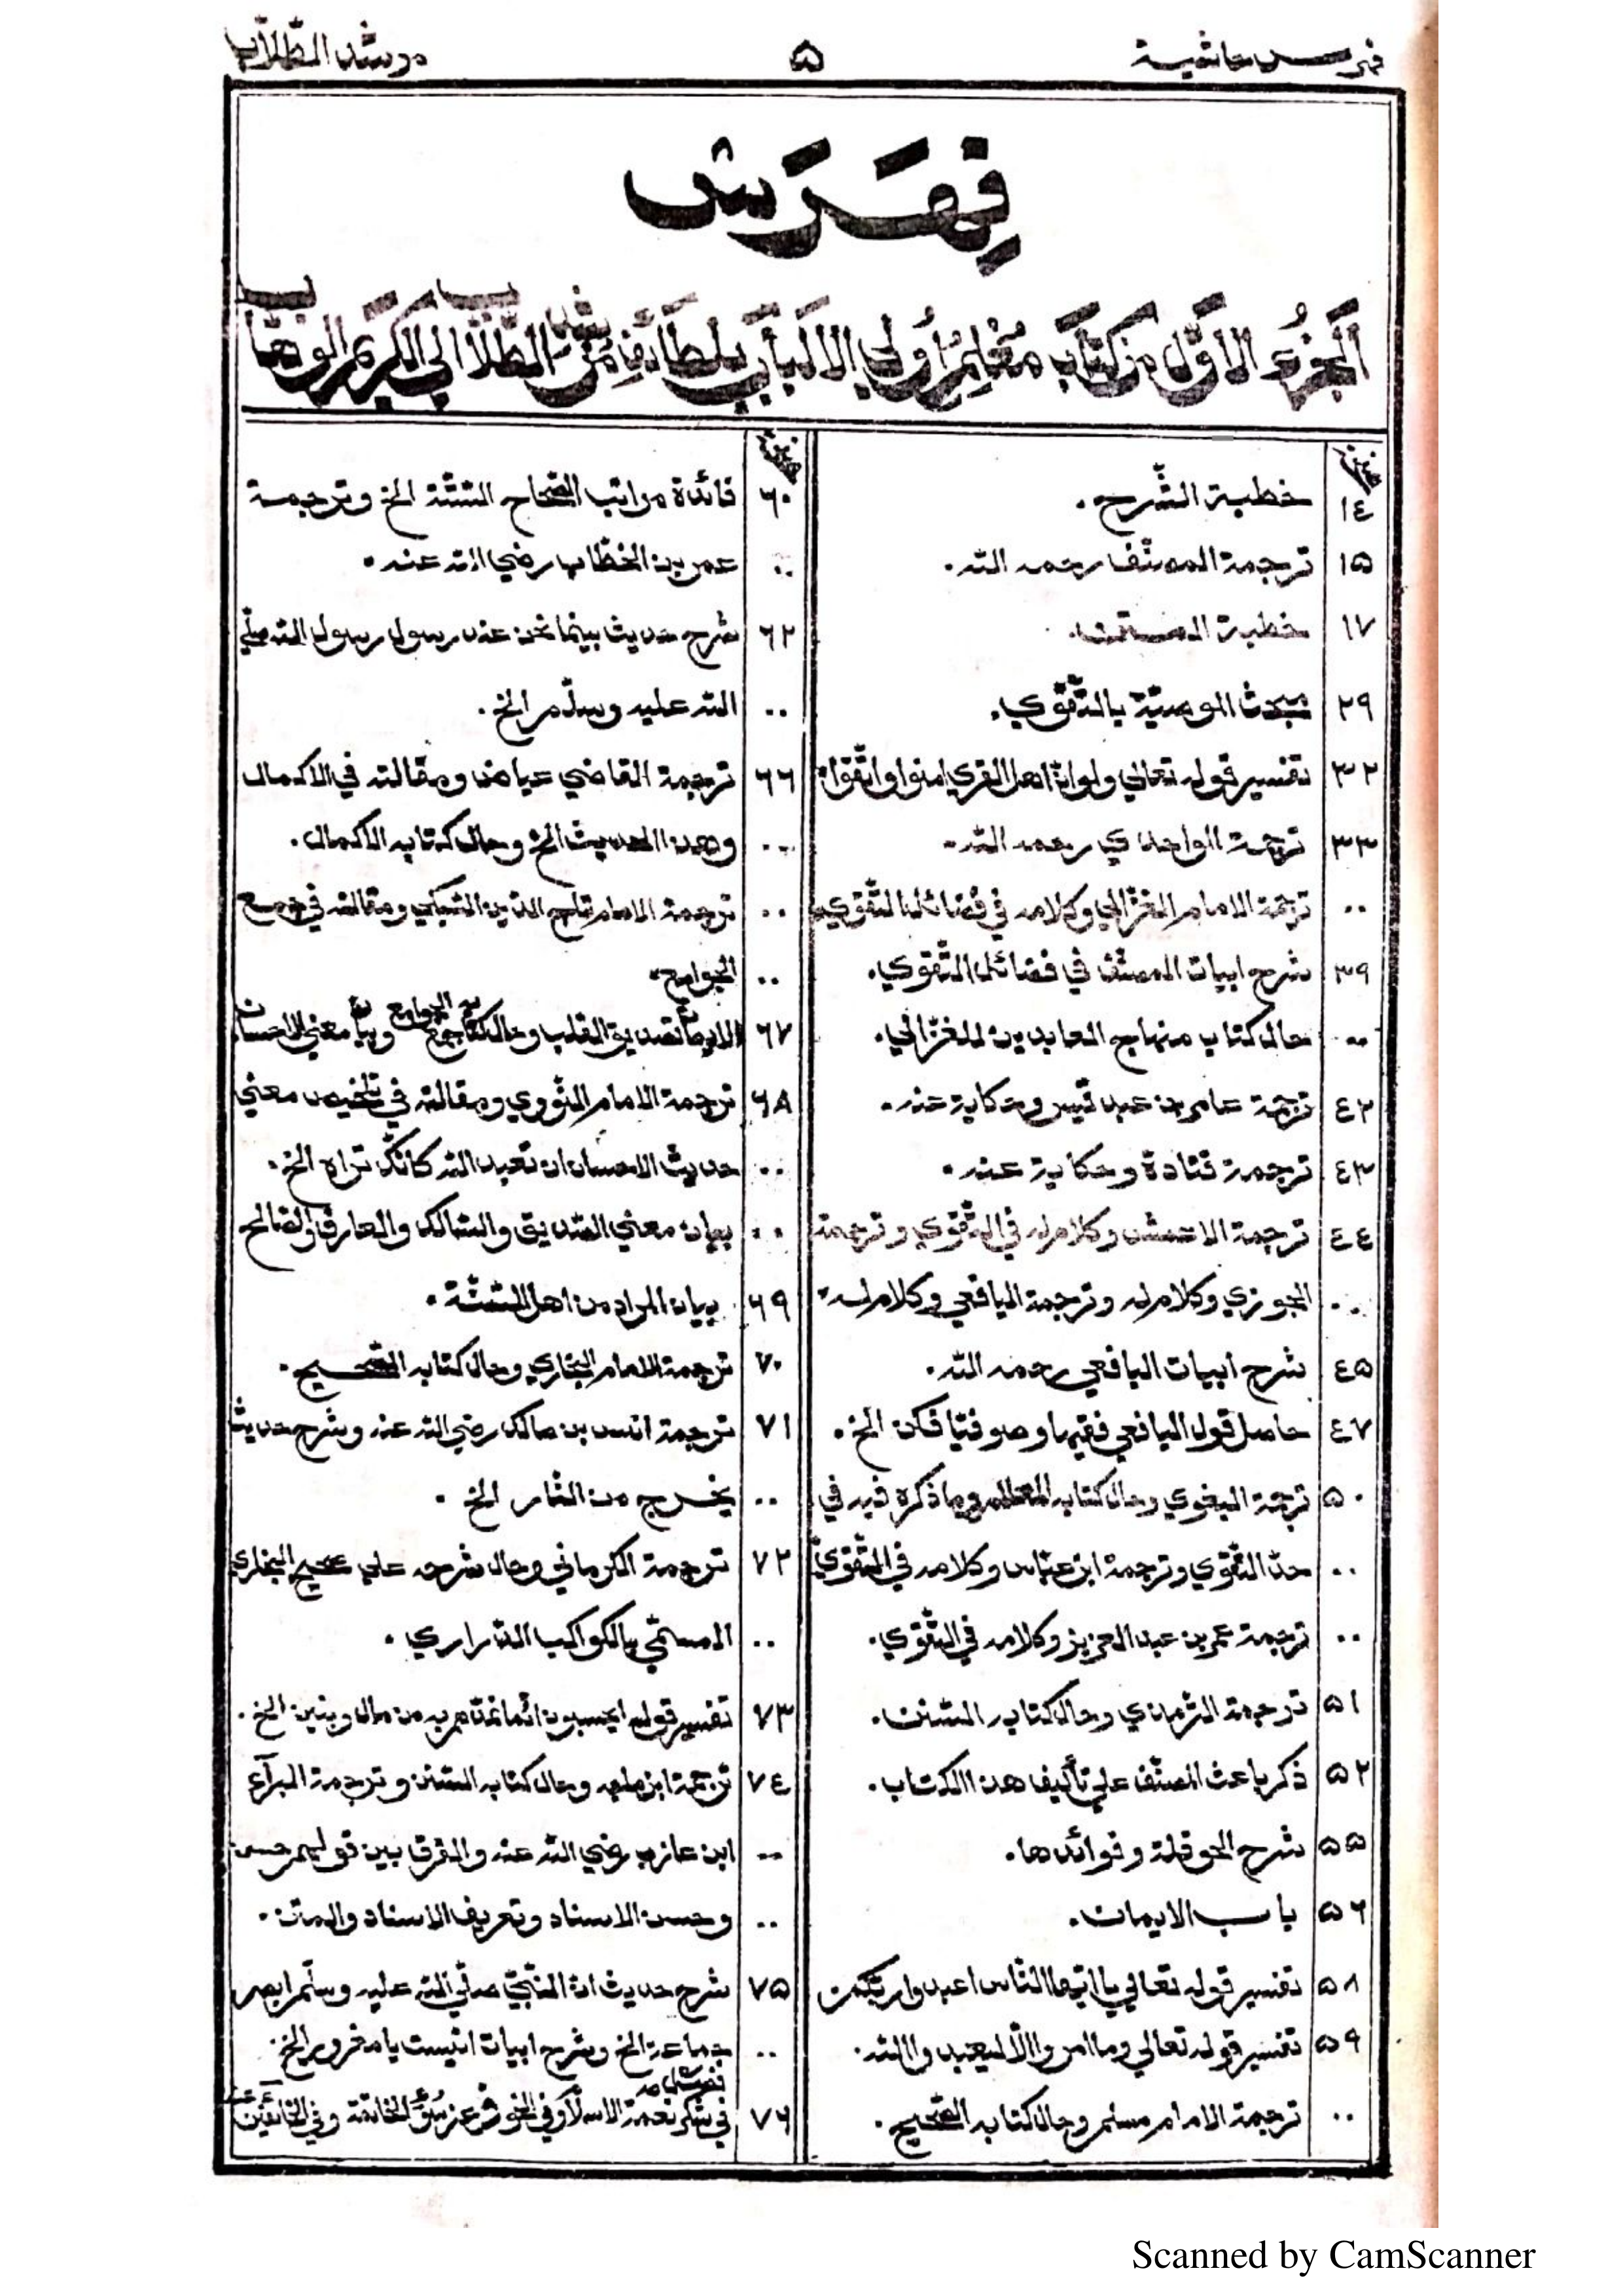 فهرس حاشية
۵
مرشد الطلاب
فِهْرَسْ
الجزء الاول من كتاب مفهم اولي الالباب بلطائف مرشد الطلاب الى الكريم الوهاب
صحيفة
١٤ خطبة الشّرح.
١۵ ترجمة المصنّف رحمه الله.
١٧ خطبة المصنف.
٢٩ مبحث الوصيّة بالتّقوي.
٣٢ تفسير قوله تعالي ولو انّ اهل القري امنوا واتّقوا
٣٣ ترجمة الواحدي رحمه الله.
.. ترجمة الامام الغزّالي وكلامه في فضائل التّقوي
٣٩ شرح ابيات المصنّف في فضائل التّقوي.
.. حال كتاب منهاج العابدين للغزّالي.
٤٢ ترجمة عامر بن عبد قيس وحكاية عنه.
٤٣ ترجمة قتادة وحكاية عنه.
٤٤ ترجمة الاعمش وكلام له في التّقوي وترجمة
.. الجوزي وكلام له وترجمة اليافعي وكلام له
٤۵ شرح ابيات اليافعي رحمه الله.
٤٧ حاصل قول اليافعي فقيها وصوفيّا فكن الخ.
۵٠ ترجمة البغوي وحال كتابه المعالم وما ذكره فيه في
.. حدّ التّقوي وترجمة ابن عبّاس وكلامه في التّقوي
.. ترجمة عمر بن عبد العزيز وكلامه في التّقوي.
۵١ ترجمة التّرمذي وحال كتابه السّنن.
۵٢ ذكر باعث المصنّف علي تأليف هذا الكتاب.
۵۵ شرح الحوقلة وفوائدها.
۵٦ باب الايمان.
۵٨ تفسير قوله تعالي يا ايّها النّاس اعبدوا ربّكم
۵٩ تفسير قوله تعالي وما امروا الّا ليعبدوا الله.
.. ترجمة الامام مسلم وحال كتابه الصّحيح.
صحيفة
٦٠ فائدة مراتب الصّحاح السّتّة الخ وترجمة
.. عمر بن الخطّاب رضي الله عنه.
٦٢ شرح حديث بينما نحن عند رسول رسول الله صلّي
.. الله عليه وسلّم الخ.
٦٦ ترجمة القاضي عياض ومقالته في الاكمال
.. وهذا الحديث الخ وحال كتابه الاكمال.
.. ترجمة الامام تاج الدّين السّبكي ومقالته في جمع
.. الجوامع.
٦٧ الايمان تصديق القلب وحال كتابه جمع الجوامع وبيان معني الاحسان
٦٨ ترجمة الامام النّووي ومقالته في تلخيص معني
.. حديث الاحسان ان تعبد الله كانّك تراه الخ.
.. بيان معني الصّديق والسّالك والعارف والصّالح
٦٩ بيان المراد من اهل السّنّة.
٧٠ ترجمة الامام البخاري وحال كتابه الصّحيح.
٧١ ترجمة انس بن مالك رضي الله عنه وشرح حديث
.. يخرج من النّار الخ.
٧٢ ترجمة الكرماني وحال شرحه علي صحيح البخاري
.. المسمّي بالكواكب الدّراري.
٧٣ تفسير قوله ايحسبون انّما نمدّهم به من مال وبنين الخ.
٧٤ ترجمة ابن ماجه وحال كتابه السّنن وترجمة البرآء
.. ابن عازب رضي الله عنه والفرق بين قوليهم حسن
.. وحسن الاسناد وتعريف الاسناد والمتن.
٧۵ شرح حديث انّ النّبيّ صلّي الله عليه وسلّم ابصر
.. جماعة الخ وشرح ابيات انيست يا مغرور الخ.
٧٦ في شكر نعمة الاسلام وفي الخوف عن سوء الخاتمة وفي الخائفين
Scanned by CamScanner